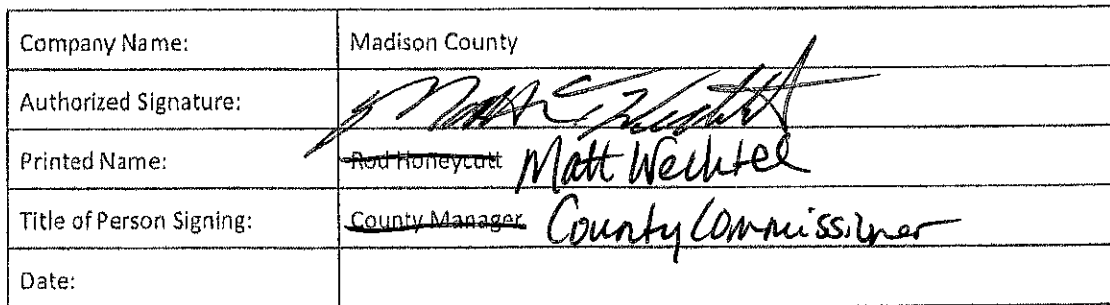 Company Name: Madison County
Authorized Signature:
Printed Name: Rod Honeycutt Matt Wechtel
Title of Person Signing: County Manager County Commissioner
Date: